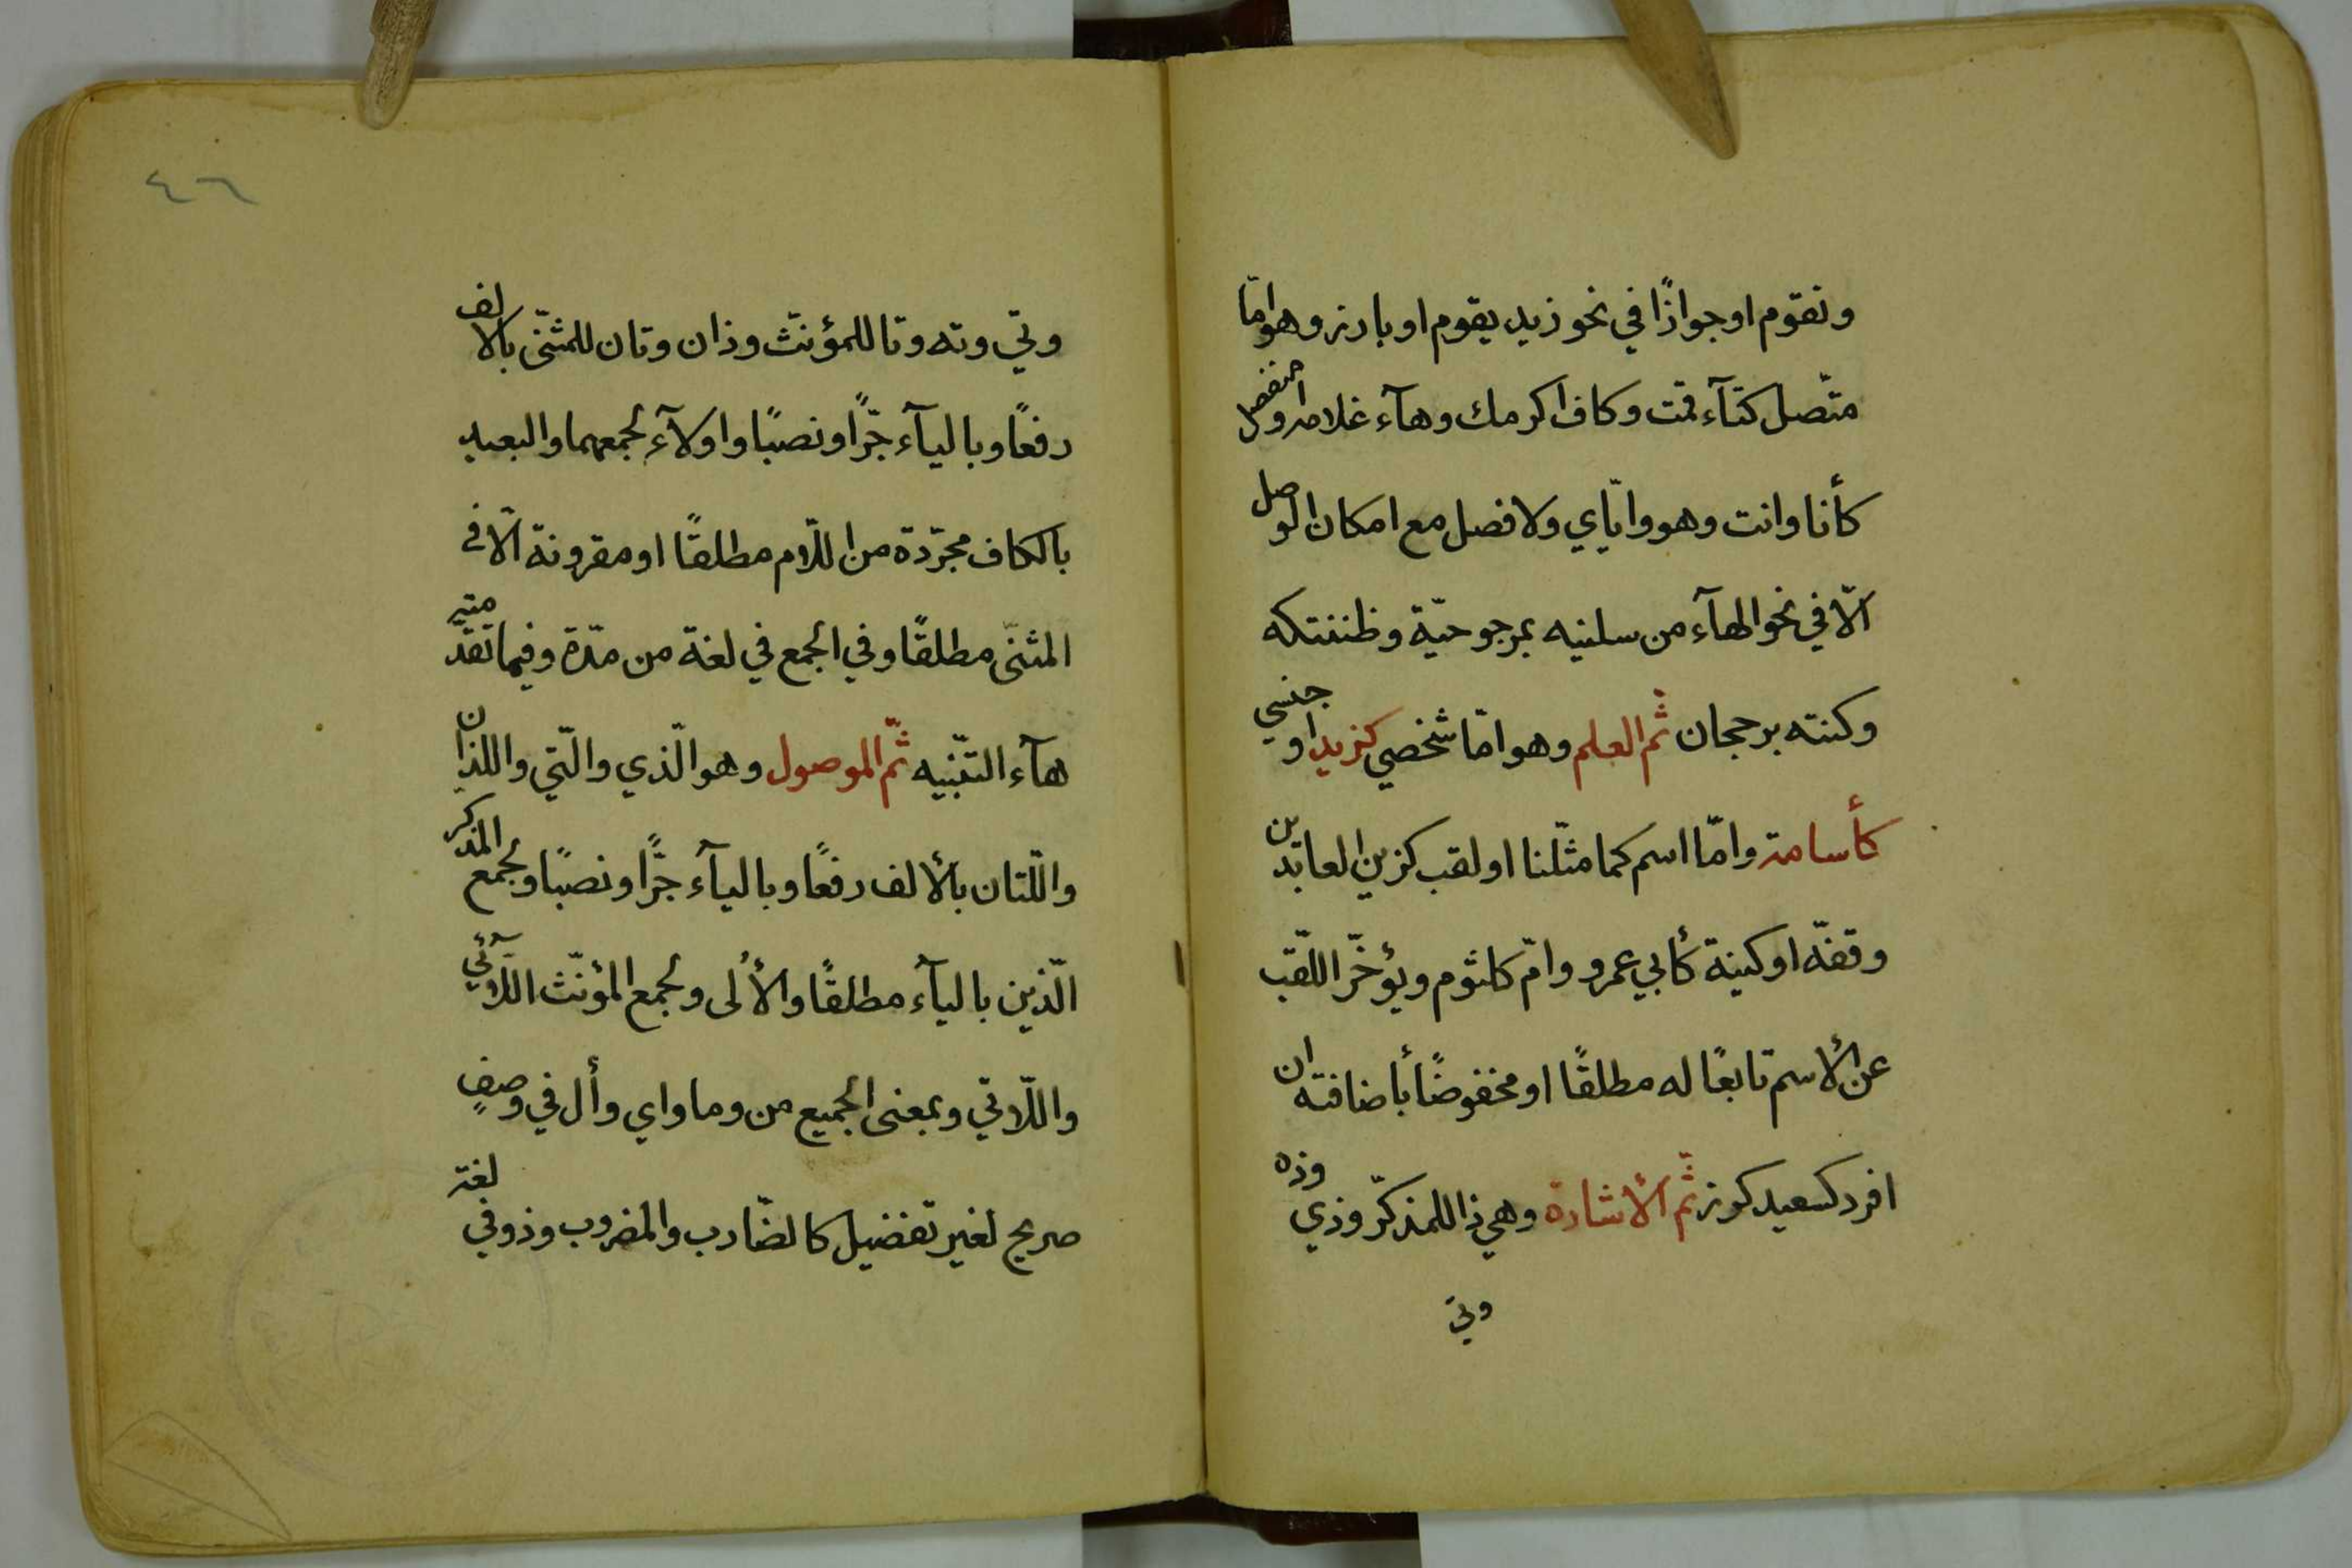 ونقوم او جوازًا في نحو زيد يقوم او بارز وهو امّا
متّصل كتآء قمت وكاف اكرمك وهآء غلامه او منفصل
كأنا وانت وهو وايّاي ولا فصل مع امكان الوصل
الّا في نحو الهآء من سلنيه بمرجوحيّة وظننتكه
وكنته برجحان ثمّ العلم وهو امّا شخصي كزيد او جنسي
كأسامة وامّا اسم كما مثّلنا او لقب كزين العابدين
وقفّه او كنية كأبي عمرو وامّ كلثوم ويؤخّر اللّقب
عن الأسم تابعًا له مطلقًا او مخفوضًا بأضافته ان
افرد كسعيد كرز ثمّ الأشارة وهي ذا للمذكّر وذي وذه
وتي
٤٦
وتي وته وتا للمؤنّث وذان وتان للمثنّى بالالف
رفعًا وباليآء جرًّا ونصبًا واولآء لجمعهما والبعيد
بالكاف مجرّدة من اللّام مطلقًا او مقرونة الّا في
المثنّى مطلقًا وفي الجمع في لغة من مدّة وفيما تقدّمته
هآء التنبّيه ثمّ الموصول وهو الّذي والّتي واللذان
واللّتان بالألف رفعًا وباليآء جرًّا ونصبًا ولجمع المذكر
الّذين باليآء مطلقًا والأُلى ولجمع المؤنّث اللّآئي
واللّاتي وبمعنى الجميع من وما واي وأل في وصفٍ
صريح لغير تفضيل كالضّارب والمضروب وذو في لغة